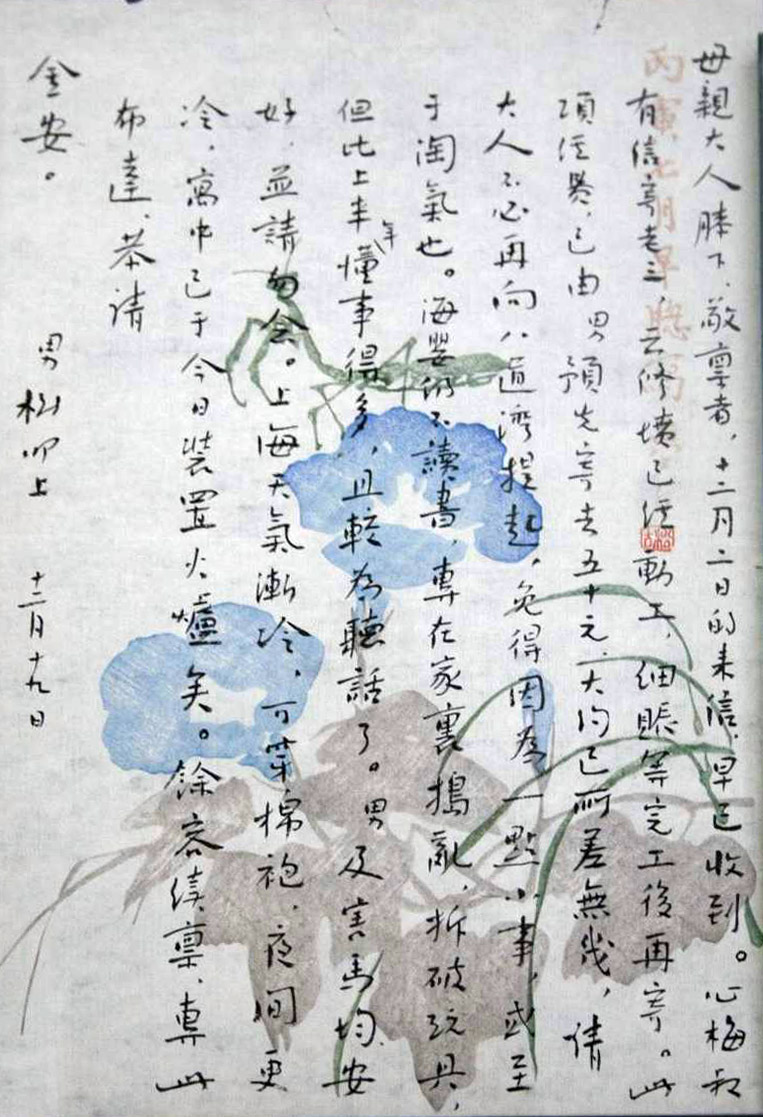 母親大人膝下、敬稟者,十二月二日的来信,早已收到。心梅叔
有信寄老三,云修墳已経動工,細賬等完工後再寄。此
項経費,已由男預先寄去五十元,大約已所差無幾,請
大人不必再向八道灣提起,免得因為一點小事,或至
于淘氣也。海嬰仍不讀書,專在家裏搗亂,拆破玩具,
但比上半年懂事得多,且較為聽話了。男及害馬均安
好,並請勿念。上海天氣漸冷,可穿棉袍,夜間更
冷,寓中已于今日裝置火爐矣。餘容續稟、專此
布達、恭請
金安。
男 樹叩上 十二月十九日
丙寅七月